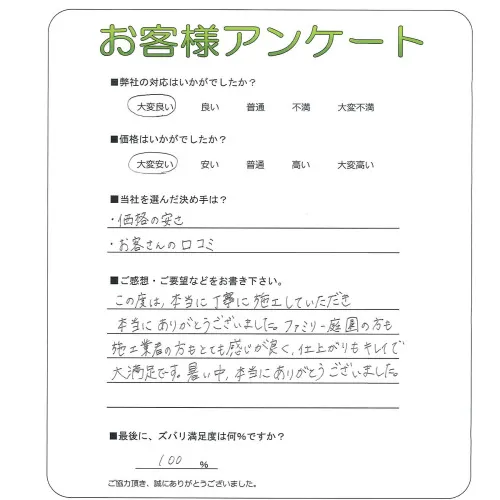 お客様アンケート
■弊社の対応はいかがでしたか？
大変良い 良い 普通 不満 大変不満
■価格はいかがでしたか？
大変安い 安い 普通 高い 大変高い
■当社を選んだ決め手は？
・価格の安さ
・お客さんの口コミ
■ご感想・ご要望などをお書き下さい。
この度は、本当に丁寧に施工していただき
本当にありがとうございました。ファミリー庭園の方も
施工業者の方もとても感じが良く、仕上がりもキレイで
大満足です。暑い中、本当にありがとうございました。
■最後に、ズバリ満足度は何％ですか？
100 ％
ご協力頂き、誠にありがとうございました。